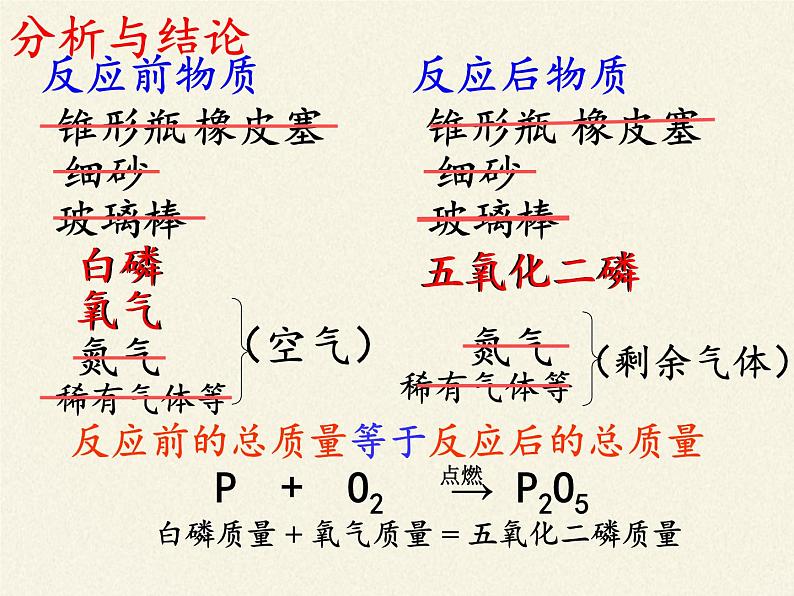 分析与结论
反应前物质 反应后物质
锥形瓶 橡皮塞 锥形瓶 橡皮塞
细砂 细砂
玻璃棒 玻璃棒
白磷 五氧化二磷
氧气
(空气)
氮气 氮气 (剩余气体)
稀有气体等 稀有气体等
反应前的总质量等于反应后的总质量
P + O₂ 点燃→ P₂O₅
白磷质量 + 氧气质量 = 五氧化二磷质量